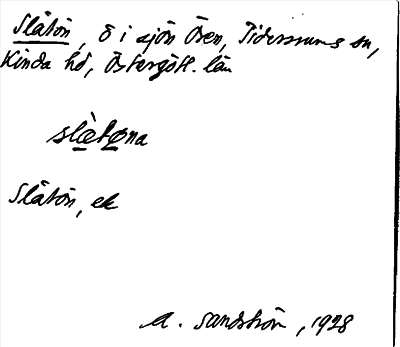 Slåtön, ö i sjön Ören, Tidersrums sn,
Kinda hd, Östergötl. län
slæ̀tøna
Slåtön, ek
A. Sandström, 1928